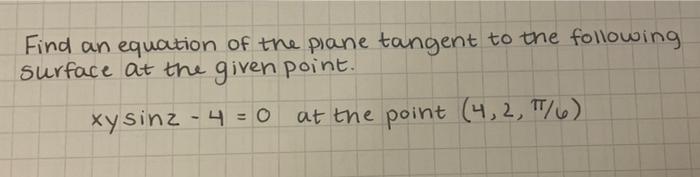 Find an equation of the plane tangent to the following
surface at the given point.
xy sinz - 4 = 0 at the point (4, 2, π/6)